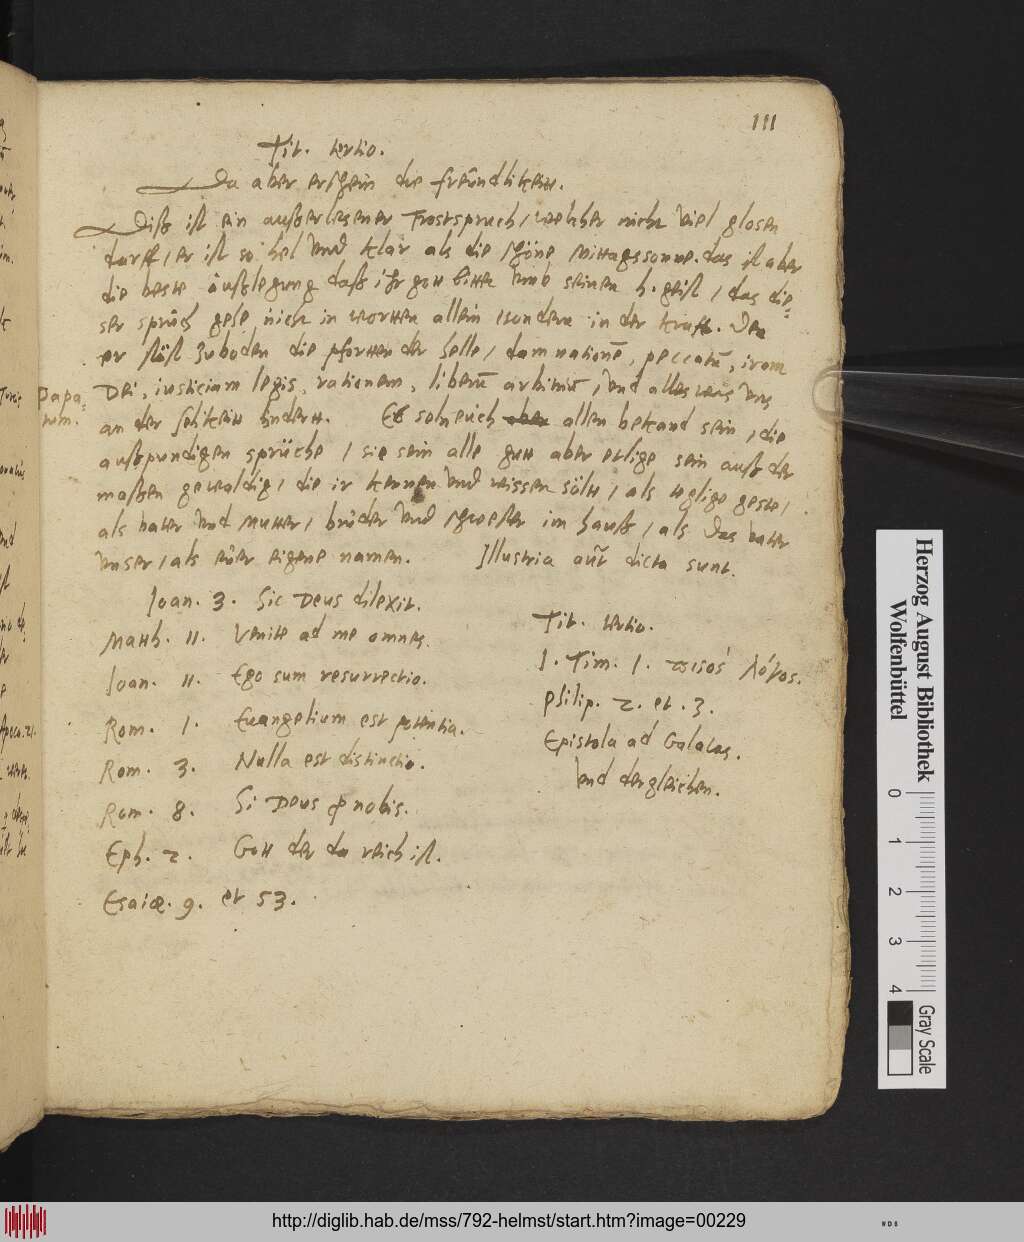 111
Tit. tertio.
Da aber erschein die freündlikeitt.
Disz ist ein auszerlesener Trostspruch / welcher nicht viel glosen
darff / er ist so hel vnd klar als die schöne Mittagssonne. das ist aber
die beste auszlegung dasz ihr gott bittett vmb seinen h. geist / das die-
ser spruch gehe nicht in wortten allein / sondern in der krafft. Den
er stöst zuboden die pfortten der helle / damnationē, peccatū, iram
Dei, iusticiam legis, rationem, liberū arbitriū, vnd alles was vns
Papa-
tum.
an der selikeitt hindertt. Es soln euich aber allen bekand sein / die
auszpundigen sprüche / sie sein alle gutt aber etlige sein ausz der
maszen gewaldig / die ir kennen vnd wissen söltt / als teglige geste /
als vatter vnd mutter / bruder vnd schwester im hausz / als das vatter
vnser / als euer eigene namen. Illustria autē dicta sunt.
Ioan. 3. Sic Deus dilexit.
Matth. 11. Venite ad me omnes.
Ioan. 11. Ego sum resurrectio.
Rom. 1. Euangelium est potentia.
Rom. 3. Nulla est distinctio.
Rom. 8. Si Deus p nobis.
Eph. 2. Gott der da reich ist.
Esaiæ. 9. et 53.
Tit. tertio.
1. Tim. 1. πισος λόγος.
Philip. 2. et. 3.
Epistola ad Galatas.
vnd dergleichen.
Herzog August Bibliothek
Wolfenbüttel
0 1 2 3 4
Gray Scale
http://diglib.hab.de/mss/792-helmst/start.htm?image=00229